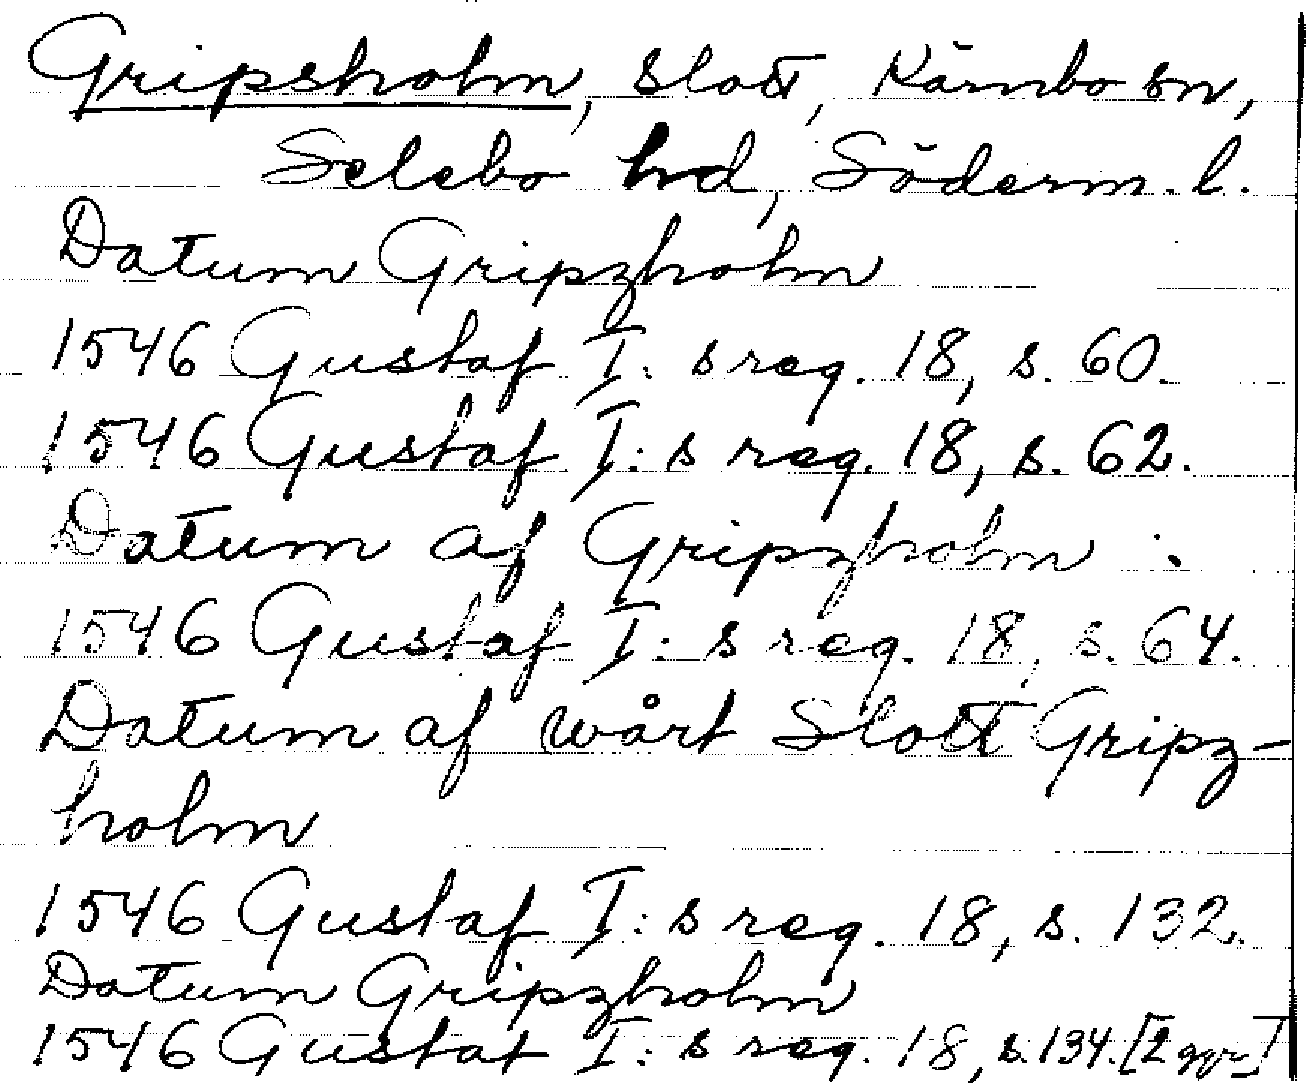 Gripsholm, slott, Kärnbo sn,
Selebo hd, Söderm. l.
Datum Gripzholm
1546 Gustaf I: s reg. 18, s. 60.
1546 Gustaf I: s reg. 18, s. 62.
Datum af Gripzholm
1546 Gustaf I: s reg. 18, s. 64.
Datum af wårt Slott Gripz-
holm
1546 Gustaf I: s reg. 18, s. 132.
Datum Gripzholm
1546 Gustaf I: s reg. 18, s. 134. [2 ggr]